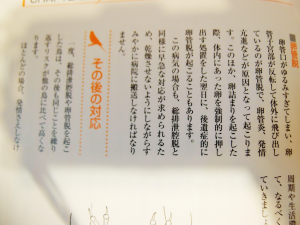 卵管脱
卵管口がゆるみすぎてしまい、卵
管子宮部が反転して体外に飛び出し
ているのが卵管脱で、卵管炎、発情
亢進などが原因となって起こりま
す。このほか、卵詰まりを起こした
際、体内にあった卵を強制的に押し
出す処置をした翌日に、後遺症的に
卵管脱が起こることもあります。
この病気の場合も、総排泄腔脱と
同様に早急な対応が求められるた
め、乾燥させないようにしながらす
みやかに病院に搬送しなければなり
ません。
その後の対応
一度、総排泄腔脱や卵管脱を起こ
した鳥は、その後も同じことを繰り
返すリスクが他の鳥に比べて高くな
ります。
ほとんどの場合、発情さえしなけ
周期や生活環
て、なるべく
ていきましょ